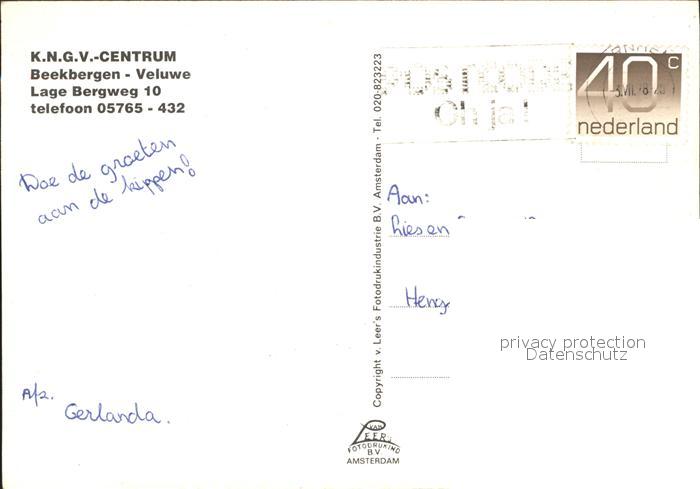 K.N.G.V.-CENTRUM
Beekbergen - Veluwe
Lage Bergweg 10
telefoon 05765 - 432
Doe de groeten
aan de kippen!
A/z.
Gerlanda.
Copyright v. Leer's Fotodrukindustrie B.V. Amsterdam - Tel. 020-823223
VAN
LEER's
FOTODRUKIND
B.V.
AMSTERDAM
40c
nederland
Aan:
Lies en
Heng
privacy protection
Datenschutz